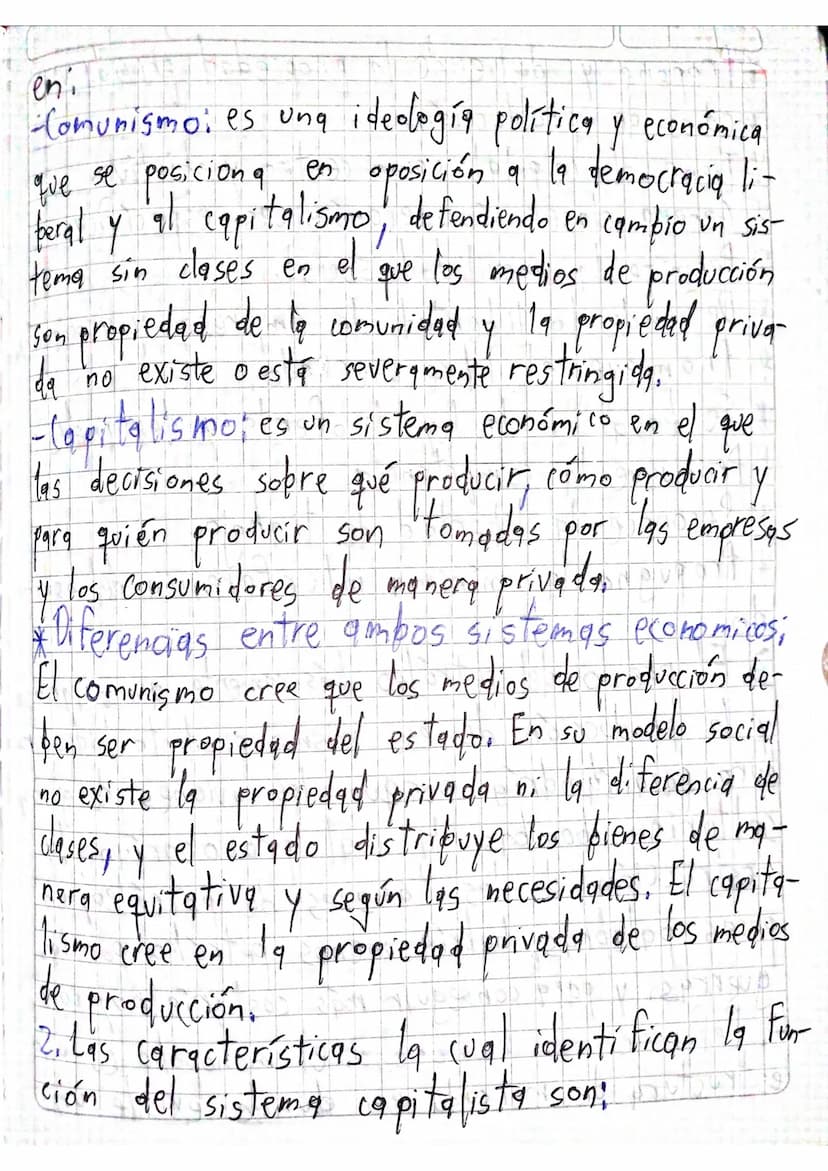 en:
-Comunismo: es una ideología política y económica
que se posiciona en oposición a la democracia li-
beral y al capitalismo, defendiendo en cambio un sis-
tema sin clases en el que los medios de producción
son propiedad de la comunidad y la propiedad priva-
da no existe o está severamente restringida.
-Capitalismo: es un sistema económico en el que
las decisiones sobre qué producir, cómo producir y
para quién producir son tomadas por las empresas
y los consumidores de manera privada.
*Diferencias entre ambos sistemas economicos:
El comunismo cree que los medios de producción de-
ben ser propiedad del estado. En su modelo social
no existe la propiedad privada ni la diferencia de
clases, y el estado distribuye los bienes de ma-
nera equitativa y según las necesidades. El capita-
lismo cree en la propiedad privada de los medios
de producción.
2. Las características la cual identifican la fun-
ción del sistema capitalista son: